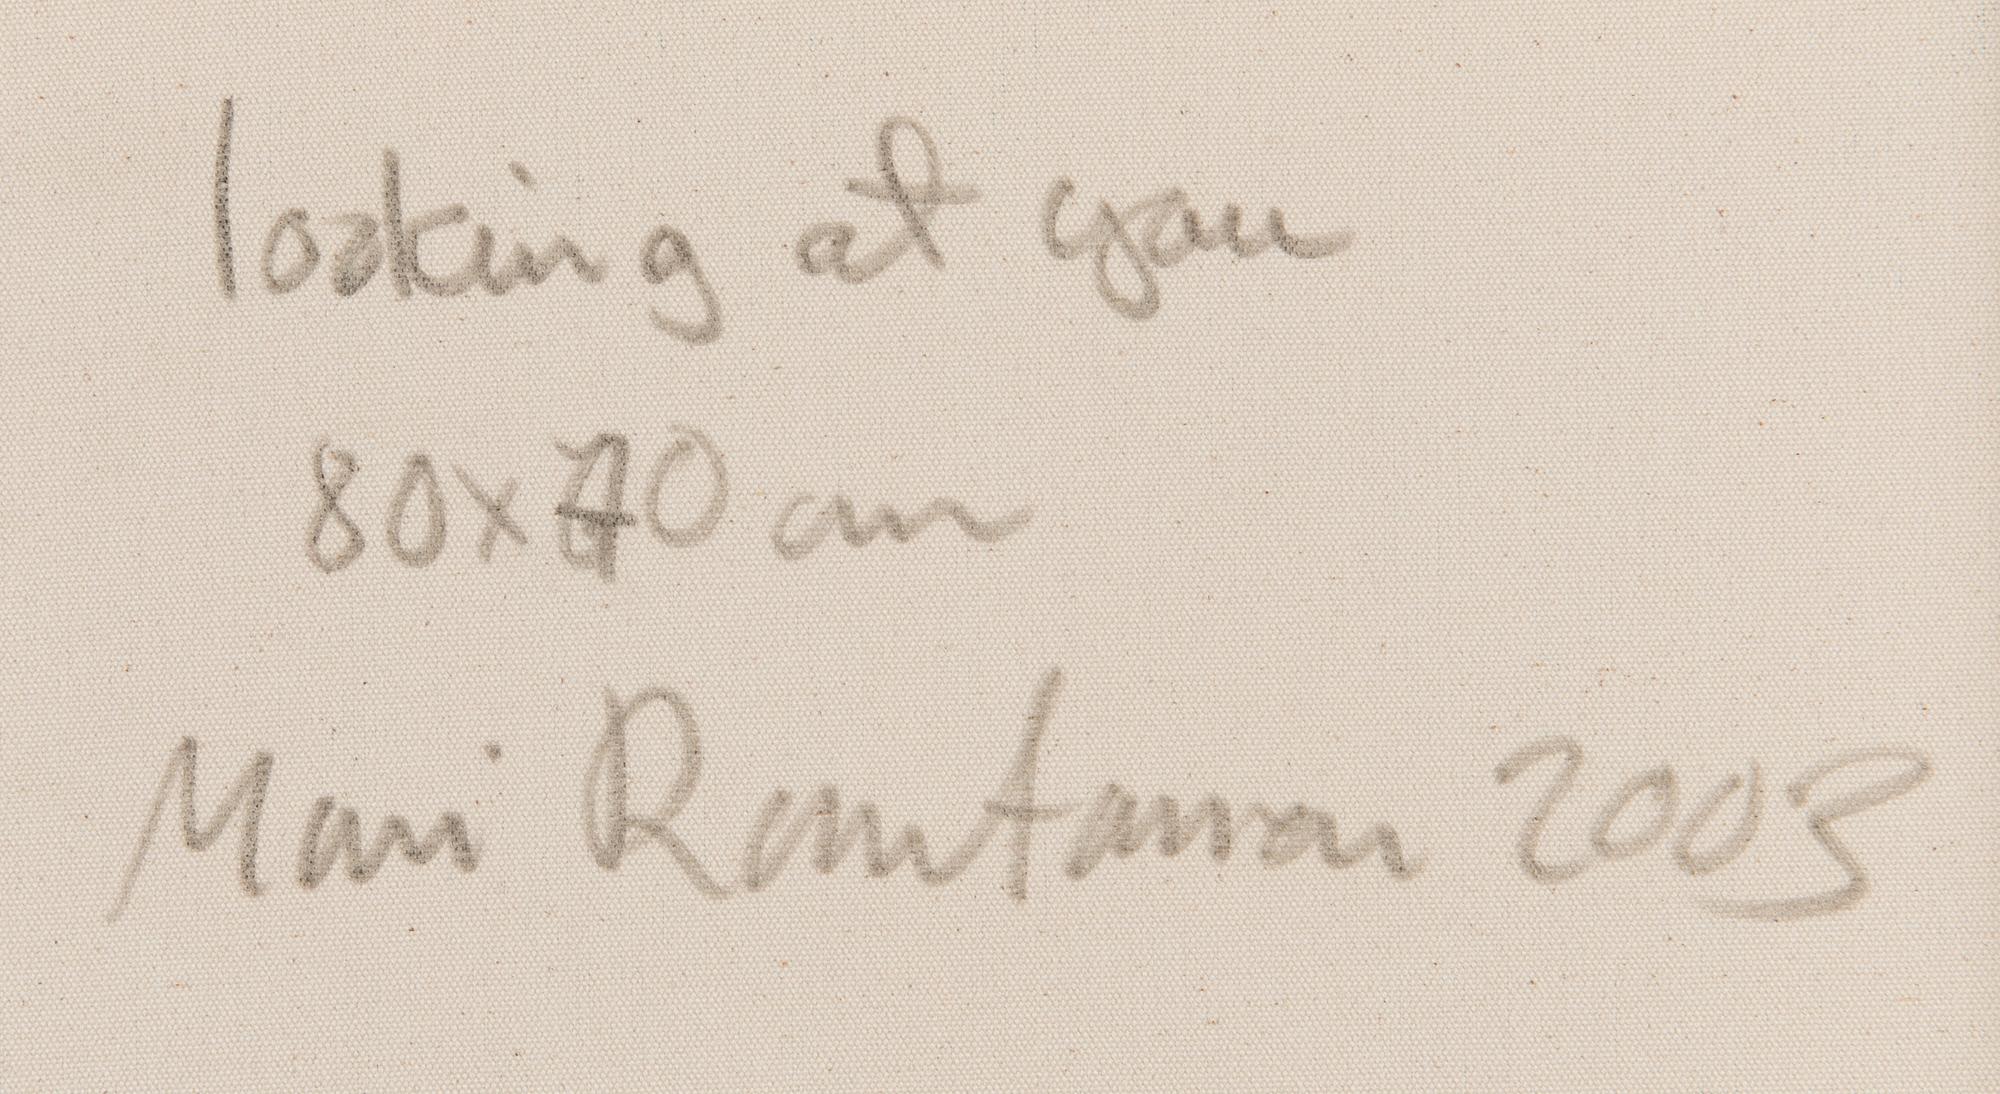 looking at you
80x70 cm
Mari Rantanen 2003